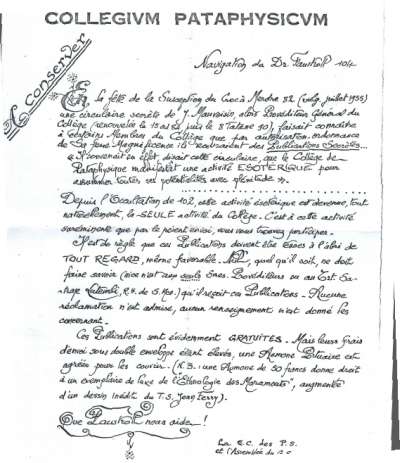 COLLEGIVM PATAPHYSICVM
A conserver
Navigation du Dr. Faustroll 104
En la fête de la Susception du Croc à Merdre 82 (vulg. juillet 1955)
une circulaire secrète de J. Mauvoisin, alors Provéditeur Général du
Collège (renouvelée le 15 as 82 puis le 8 Tatane 90), faisait connaître
à certains Membres du Collège que par autorisation, ordonnance
de Sa feue Magnificence ils recevraient des Publications Secrètes...
« Il convenait en effet, disait cette circulaire, que le Collège de
'Pataphysique manifestât une activité ESOTERIQUE pour
assumer toutes ses potentialités avec plénitude ».
Depuis l'Occultation de 102, cette activité ésotérique est devenue, tout
naturellement, la SEULE activité du Collège. C'est à cette activité
souveraine que par le présent envoi, vous vous trouvez participer.
Il est de règle que ces Publications doivent être tenues à l'abri de
TOUT REGARD, même favorable. Nul, quel qu'il soit, ne doit
faire savoir (sice n'est aux seuls Srnes. Provéditeurs ou au Cst. Sa-
trape Lutembi, R.G. du S. Nos.) qu'il reçoit ces Publications. Aucune
réclamation n'est admise, aucun renseignement n'est donné les
concernant.
Ces Publications sont évidemment GRATUITES. Mais leurs frais
d'envoi sous double enveloppe étant élevés, une Aumone Bituaire est
agréée pour les couvrir. (N.B. : une Aumone de 50 francs donne droit
à un exemplaire de luxe de l'Ethnologie des Maramouts", augmentée
d'un dessin inédit du T.S. Jean Ferry).
Que Faustroll nous aide !
La C.C. des P.S.
et l'Assemblée du